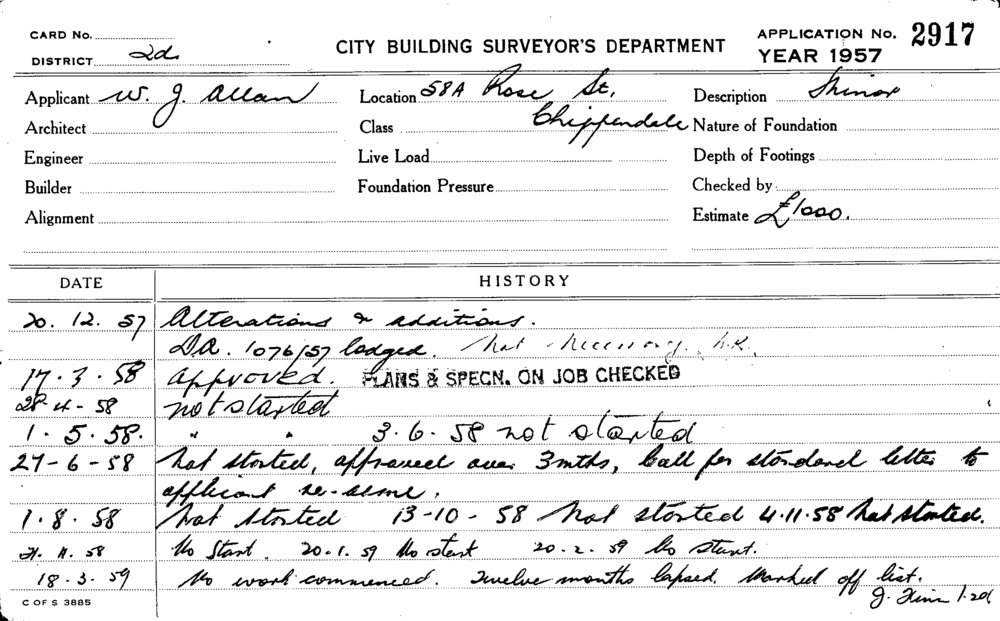 CARD No.
DISTRICT 2d.
CITY BUILDING SURVEYOR'S DEPARTMENT
APPLICATION No. 2917
YEAR 1957
Applicant W. J. Allan Location 58A Rose St, Description Minor
Architect Class Chippendale Nature of Foundation
Engineer Live Load Depth of Footings
Builder Foundation Pressure Checked by
Alignment Estimate £1000.
DATE HISTORY
20. 12. 57 Alterations & additions.
DA. 1076/57 lodged. Not necessary.
17. 3. 58 approved. PLANS & SPECN. ON JOB CHECKED
28-4-58 not started
1. 5. 58. " " 3.6.58 not started
27-6-58 Not started, approved over 3mths, Call for standard letter to
applicant re-same.
1. 8. 58 Not started 13-10-58 Not started 4.11.58 Not started.
11. 58 No start. 20.1.59 No start 20.2.59 No start.
18.3.59 No work commenced. Twelve months lapsed. Marked off list.
J. 1.2d
C OF S 3885